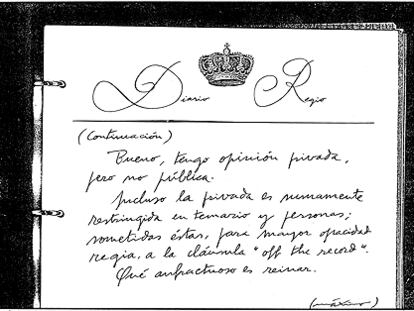 Diario Regio
(Continuación)
Bueno, tengo opinión privada,
pero no pública.
Incluso la privada es sumamente
restringida en temario y personas;
sometidas éstas, para mayor opacidad
regia, a la cláusula "off the record".
Qué anfractuoso es reinar.
(máximo)